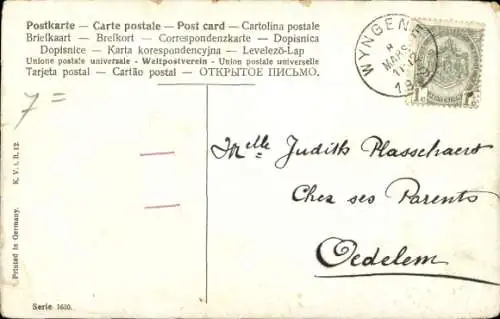 Postkarte — Carte postale — Post card — Cartolina postale
Briefkaart — Brefkort — Correspondenzkarte — Dopisnica
Dopisnice — Karta korespondencyjna — Levelező-Lap
Unione postale universale - Weltpostverein - Union postale universelle
Tarjeta postal — Cartão postal — ОТКРЫТОЕ ПИСЬМО.
7=
WYNGENE
8
MARS
19
1c
Melle Judith Plasschaert
Chez ses Parents
Oedelem
K. V. i. B. 12.
Printed in Germany.
Serie 1610.